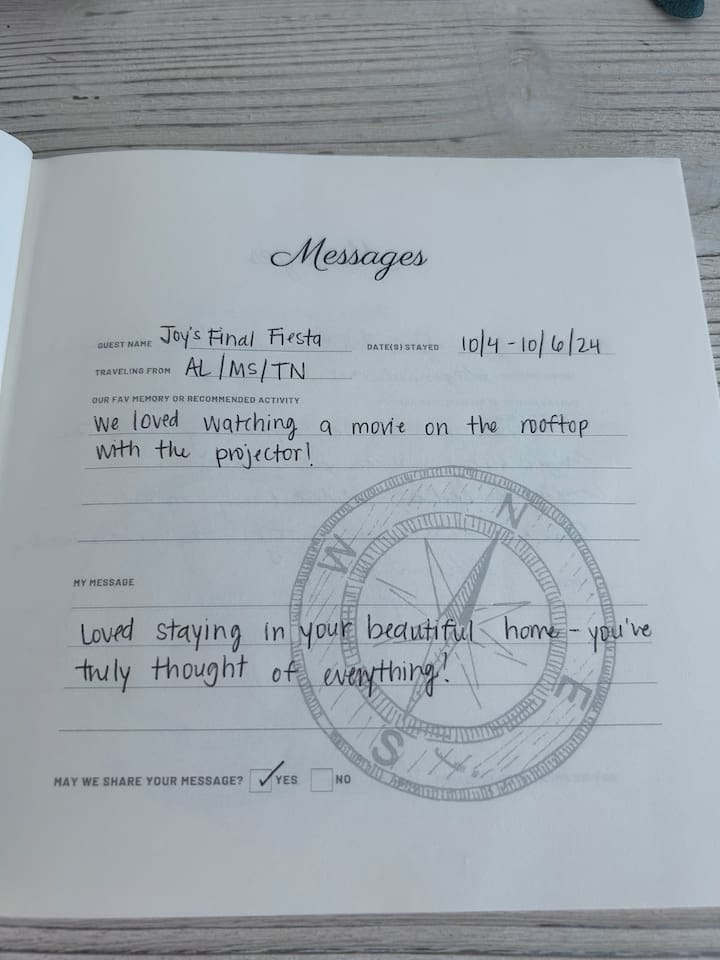 Messages
GUEST NAME Joy's Final Fiesta DATE(S) STAYED 10/4 - 10/6/24
TRAVELING FROM AL/MS/TN
OUR FAV MEMORY OR RECOMMENDED ACTIVITY
We loved watching a movie on the rooftop
with the projector!
N
W
MY MESSAGE
Loved staying in your beautiful home - you've
truly thought of everything!
E
S
MAY WE SHARE YOUR MESSAGE? YES NO